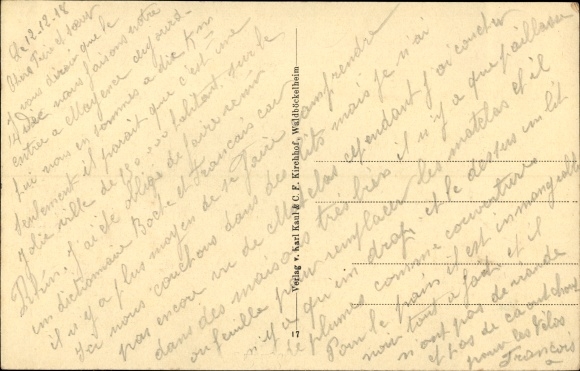 Le 12.12.18
Chers Frère et sœur
Je vous dirai que le
14 Déc nous faisons notre
entrée a Mayence aujourd-
hui nous en sommes a dix Km
seulement il parait que c'est une
jolie ville de 130 000 habitant, sur le
Rhin. J'ai été obligé de faire venir
un dictionnaire Boche et Français car
il n'y a plus moyen de se faire comprendre
Ici nous couchons dans des lits mais je n'ai
pas encore vu de matelas cependant j'ai coucher
dans des maisons très bien il n'y a que paillasse
ou feuille pour remplacer les matelas et il
n'y a qu'un drap et le dessus un lit
de plumes comme couverture
Pour le pain il est immangeable
noir tout a fait et il
n'ont pas de viande
et pas de caoutchouc
pour les vélos
François
Verlag v. Karl Kaul & C. F. Kirchhof, Waldböckelheim
17